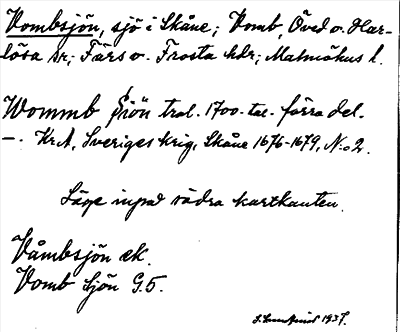 Vombsjön, sjö i Skåne; Vomb, Öved o. Har-
lösa sr; Färs o. Frosta hdr; Malmöhus l.
Wommb Siön trol. 1700-tal. förra del.
—. Kr.A, Sveriges krig, Skåne 1676-1679, N:o 2.
Läge invid södra kartkanten.
Våmbsjön ek.
Vomb Sjön G.5.
1937.